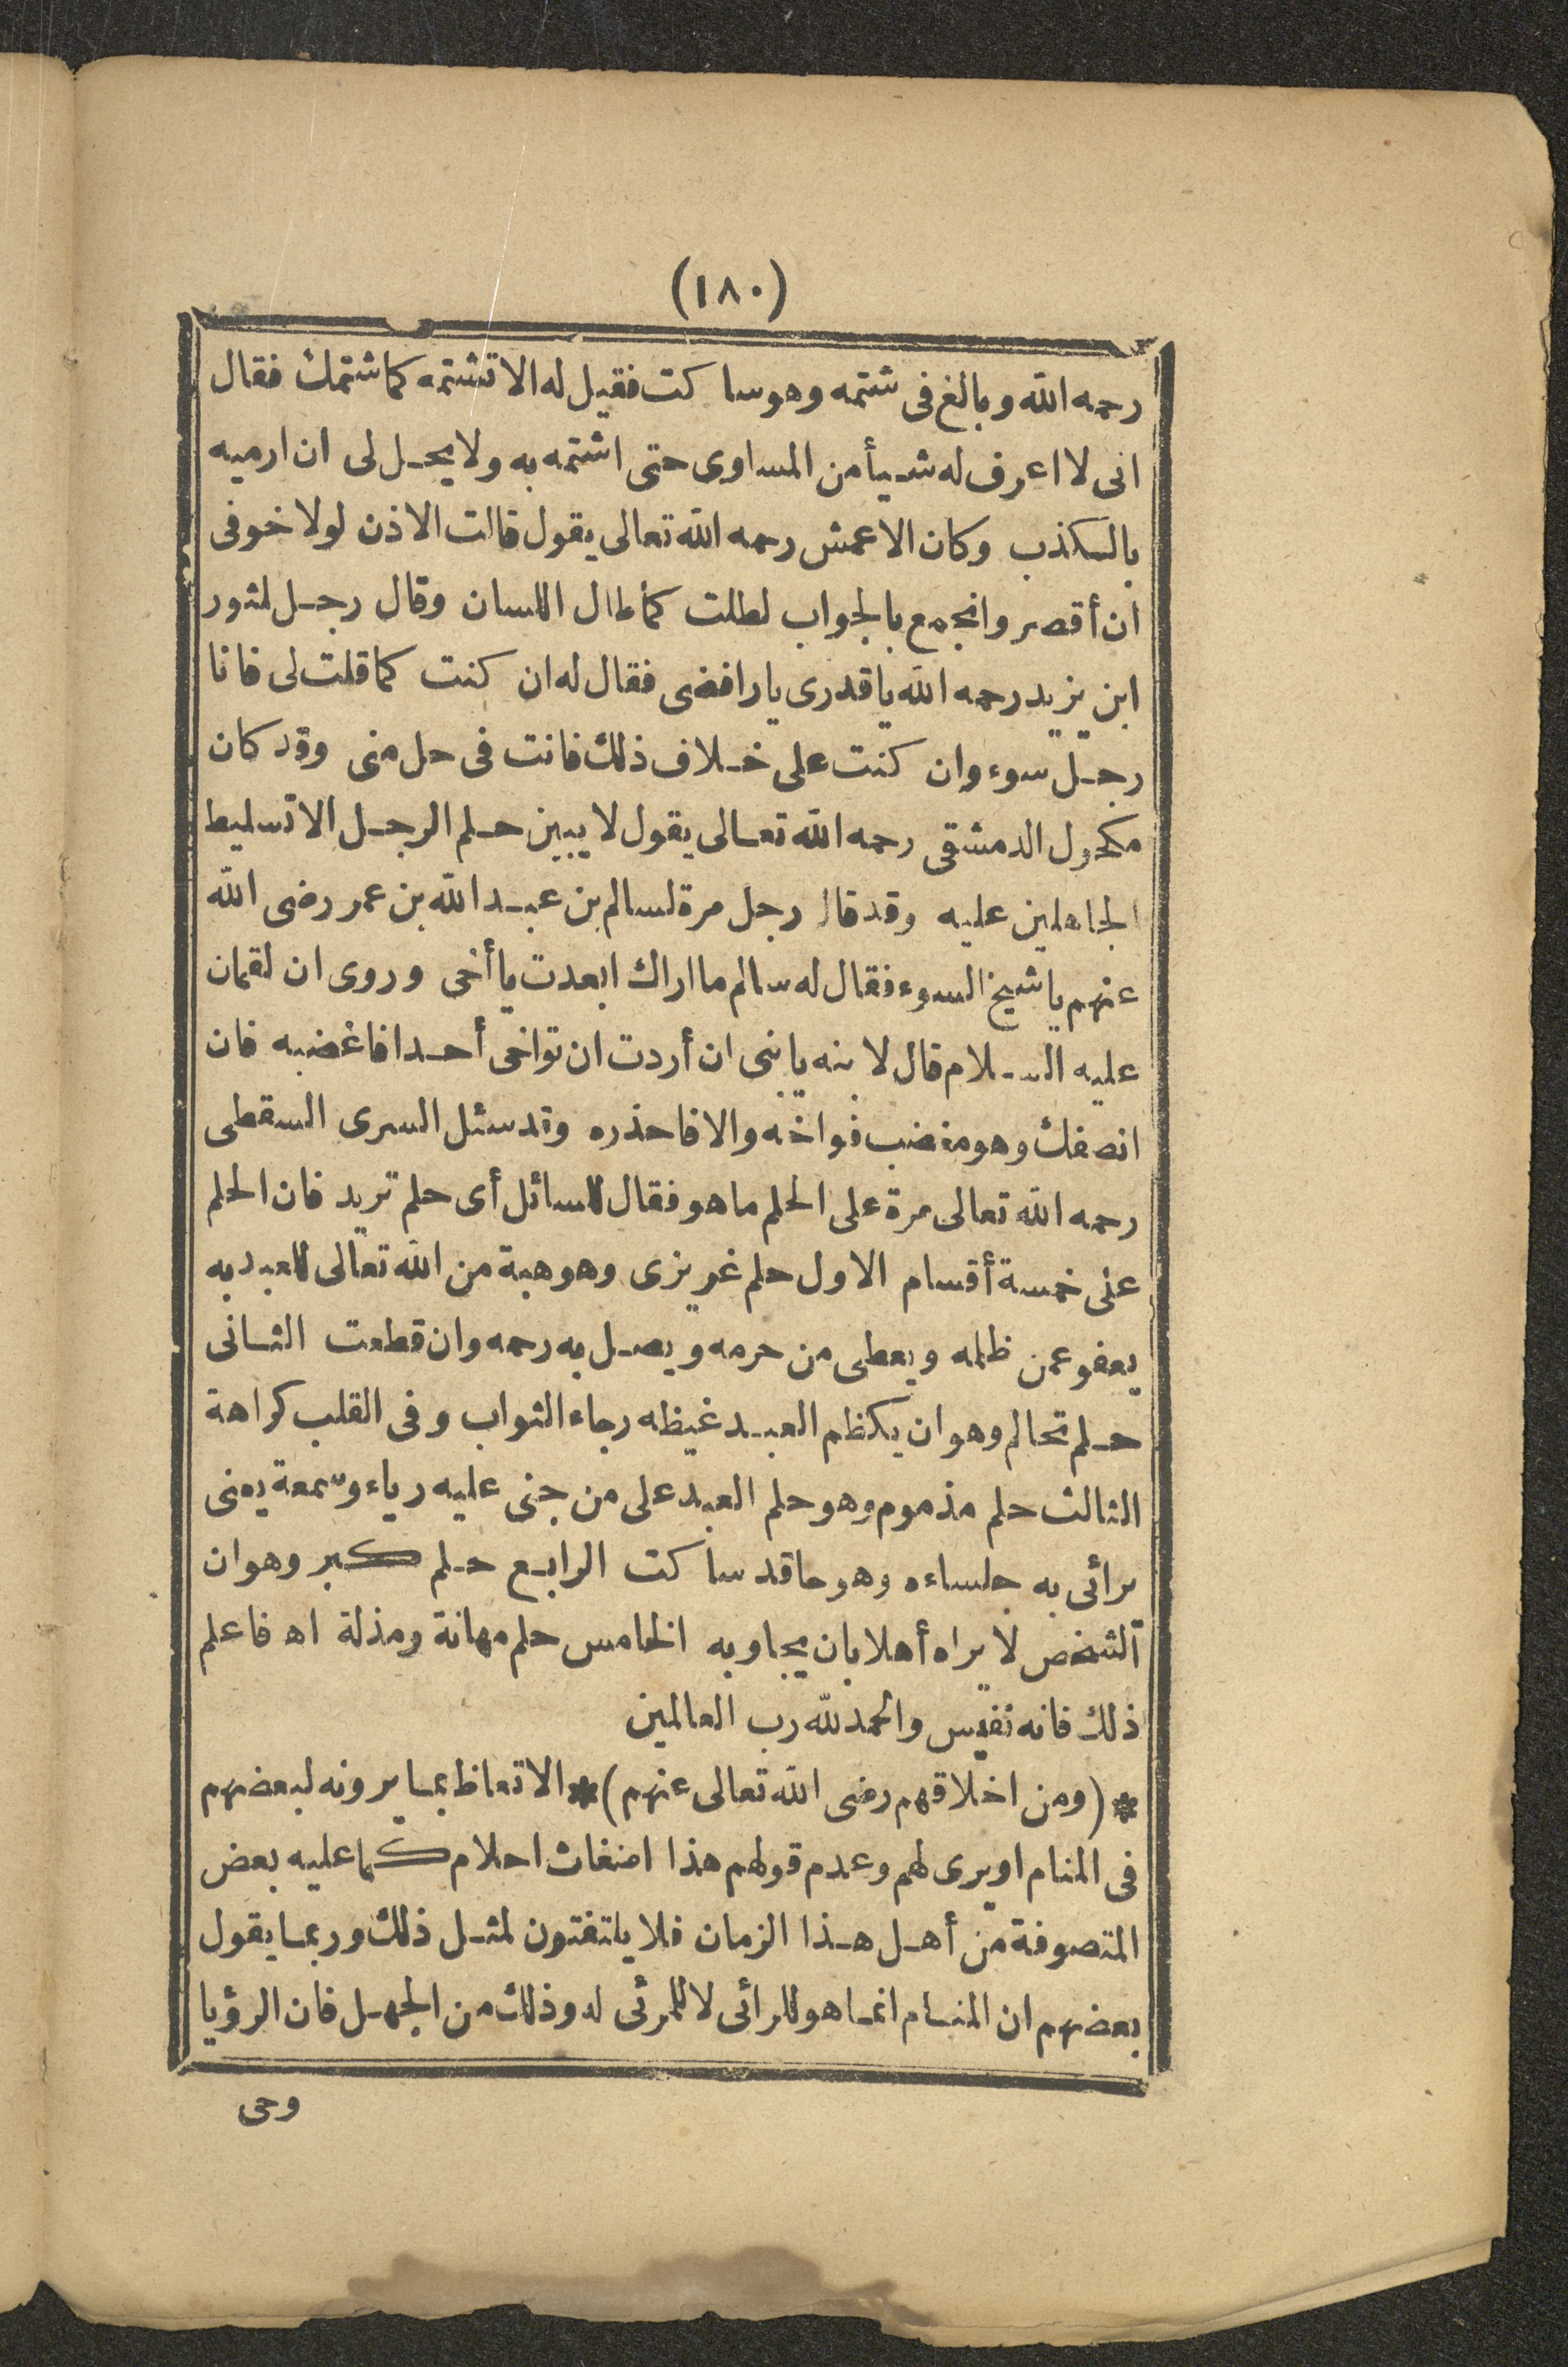 (١٨٠)
رحمه الله وبالغ فى شتمه وهو ساكت فقيل له الا تشتمه كما شتمك فقال
انى لا اعرف له شيأ من المساوى حتى اشتمه به ولا يحل لى ان ارميه
بالكذب وكان الاعمش رحمه الله تعالى يقول قالت الاذن لولا خوفى
ان أقصر وانجمع بالجواب لطلت كما طال اللسان وقال رجل لثور
ابن يزيد رحمه الله يا قدرى يا رافضى فقال له ان كنت كما قلت لى فانا
رجل سوء وان كنت على خلاف ذلك فانت فى حل منى وقد كان
مكحول الدمشقى رحمه الله تعالى يقول لا يبين حلم الرجل الا تسليط
الجاهلين عليه وقد قال رجل مرة لسالم بن عبد الله بن عمر رضى الله
عنهم يا شيخ السوء فقال له سالم ما اراك ابعدت يا أخى وروى ان لقمان
عليه السلام قال لابنه يا بنى ان أردت ان تواخى أحدا فاغضبه فان
انصفك وهو مغضب فواخه والا فاحذره وقد سئل السرى السقطى
رحمه الله تعالى مرة على الحلم ما هو فقال للسائل أى حلم تريد فان الحلم
على خمسة أقسام الاول حلم غريزى وهو هبة من الله تعالى للعبد به
يعفو عمن ظلمه ويعطى من حرمه ويصل به رحمه وان قطعت الثانى
حلم تحالم وهو ان يكظم العبد غيظه رجاء الثواب وفى القلب كراهة
الثالث حلم مذموم وهو حلم العبد على من جنى عليه رياء وسمعة يعنى
يرائى به جلساءه وهو حاقد ساكت الرابع حلم كبر وهو ان
الشخص لا يراه أهلا بان يجاوبه الخامس حلم مهانة ومذلة اه فاعلم
ذلك فانه نفيس والحمد لله رب العالمين
* (ومن اخلاقهم رضى الله تعالى عنهم) * الاتعاظ بما يرونه لبعضهم
فى المنام او يرى لهم وعدم قولهم هذا اضغاث احلام كما عليه بعض
المتصوفة من أهل هذا الزمان فلا يلتفتون لمثل ذلك وربما يقول
بعضهم ان المنام انما هو للرائى لا للمرئى له وذلك من الجهل فان الرؤيا
وحى